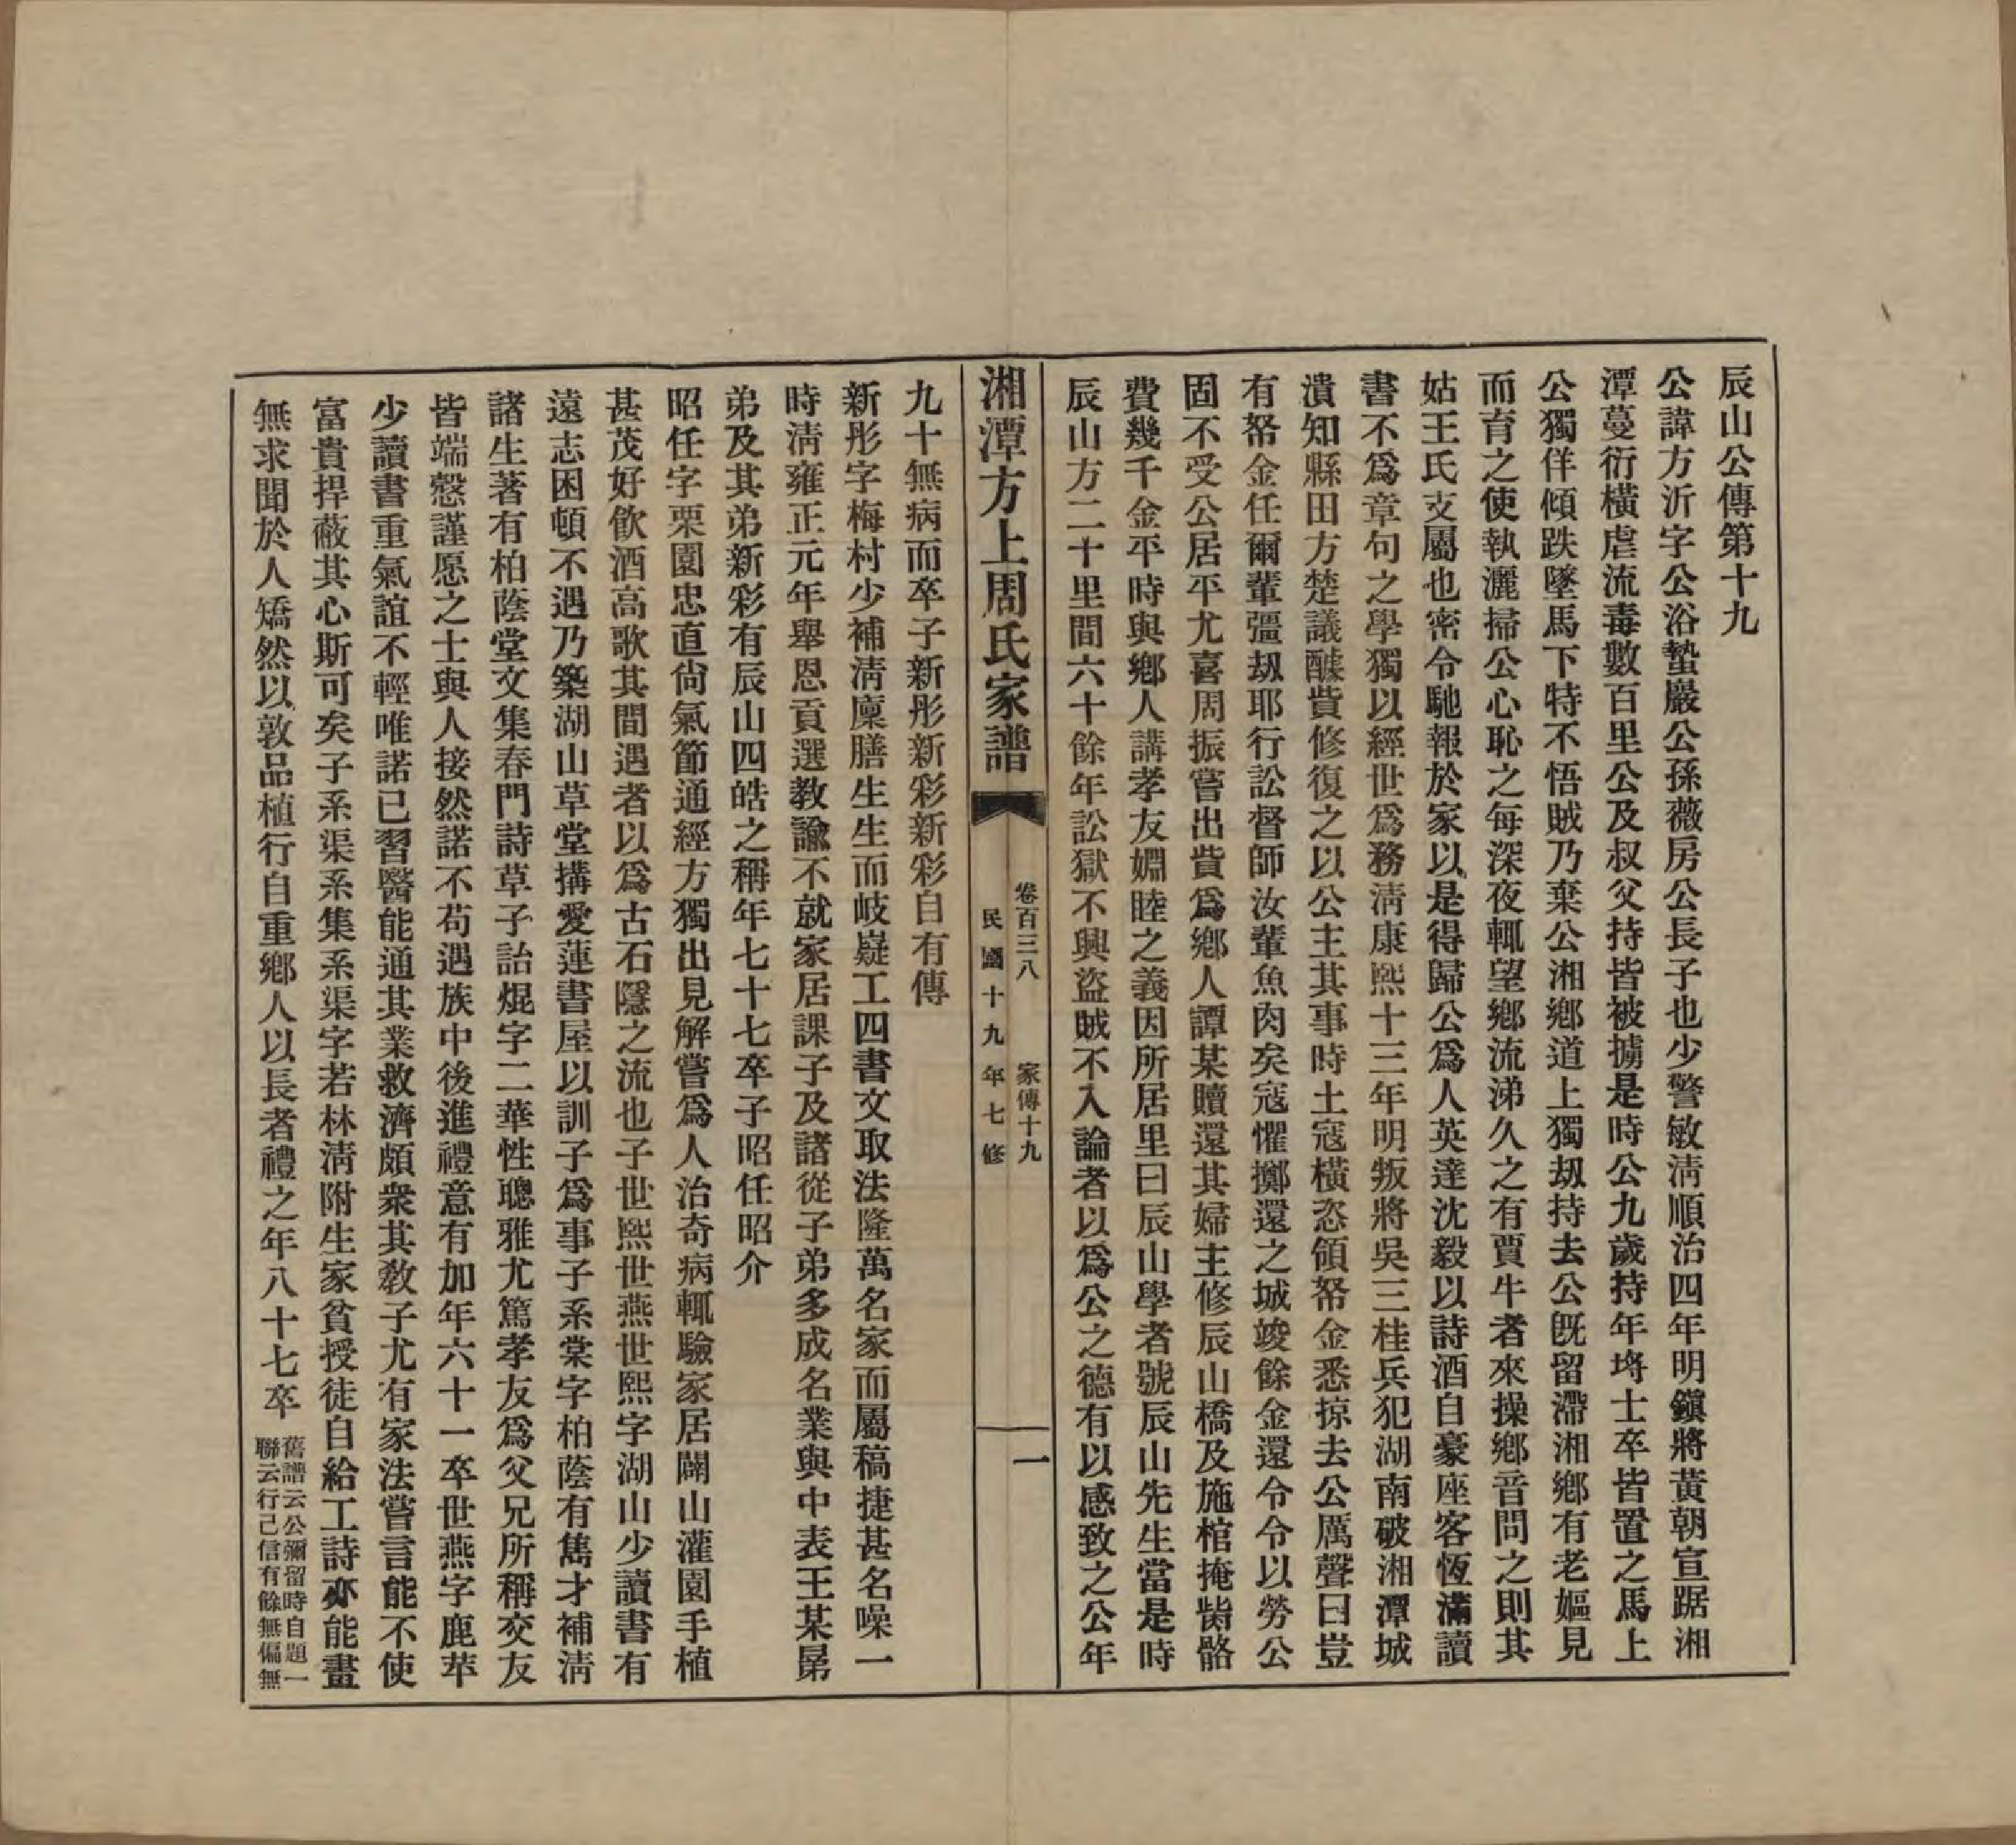 辰山公傳第十九
公諱方沂字公浴蟄巖公孫薇房公長子也少警敏淸順治四年明鎭將黃朝宣踞湘
潭蔓衍橫虐流毒數百里公及叔父持皆被擄是時公九歲持年埓士卒皆置之馬上
公獨佯傾跌墜馬下特不悟賊乃棄公湘鄕道上獨刼持去公旣留滯湘鄕有老嫗見
而育之使執灑掃公心恥之每深夜輒望鄕流涕久之有賈牛者來操鄕音問之則其
姑王氏支屬也密令馳報於家以是得歸公爲人英達沈毅以詩酒自豪座客恆滿讀
書不爲章句之學獨以經世爲務淸康熙十三年明叛將吳三桂兵犯湖南破湘潭城
潰知縣田方楚議醵貲修復之以公主其事時土寇橫恣領帑金悉掠去公厲聲曰豈
有帑金任爾輩彊刼耶行訟督師汝輩魚肉矣寇懼擲還之城竣餘金還令令以勞公
固不受公居平尤喜周振嘗出貲爲鄕人譚某贖還其婦主修辰山橋及施棺掩胔骼
費幾千金平時與鄕人講孝友婣睦之義因所居里曰辰山學者號辰山先生當是時
辰山方二十里間六十餘年訟獄不興盜賊不入論者以爲公之德有以感致之公年
湘潭方上周氏家譜
卷百三八 家傳十九
民國十九年七修
一
九十無病而卒子新彤新彩新彩自有傳
新彤字梅村少補淸廩膳生生而岐嶷工四書文取法隆萬名家而屬稿捷甚名噪一
時淸雍正元年舉恩貢選教諭不就家居課子及諸從子弟多成名業與中表王某晜
弟及其弟新彩有辰山四皓之稱年七十七卒子昭任昭介
昭任字栗園忠直尙氣節通經方獨出見解嘗爲人治奇病輒驗家居闢山灌園手植
甚茂好飮酒高歌其間遇者以爲古石隱之流也子世熙世燕世熙字湖山少讀書有
遠志困頓不遇乃築湖山草堂搆愛蓮書屋以訓子爲事子系棠字柏蔭有雋才補淸
諸生著有柏蔭堂文集春門詩草子詒焜字二華性聰雅尤篤孝友爲父兄所稱交友
皆端慤謹愿之士與人接然諾不苟遇族中後進禮意有加年六十一卒世燕字鹿苹
少讀書重氣誼不輕唯諾已習醫能通其業救濟頗衆其敎子尤有家法嘗言能不使
富貴捍蔽其心斯可矣子系渠系集系渠字若林淸附生家貧授徒自給工詩亦能畫
無求聞於人矯然以敦品植行自重鄕人以長者禮之年八十七卒舊譜云公彌留時自題一
聯云行己信有餘無偏無